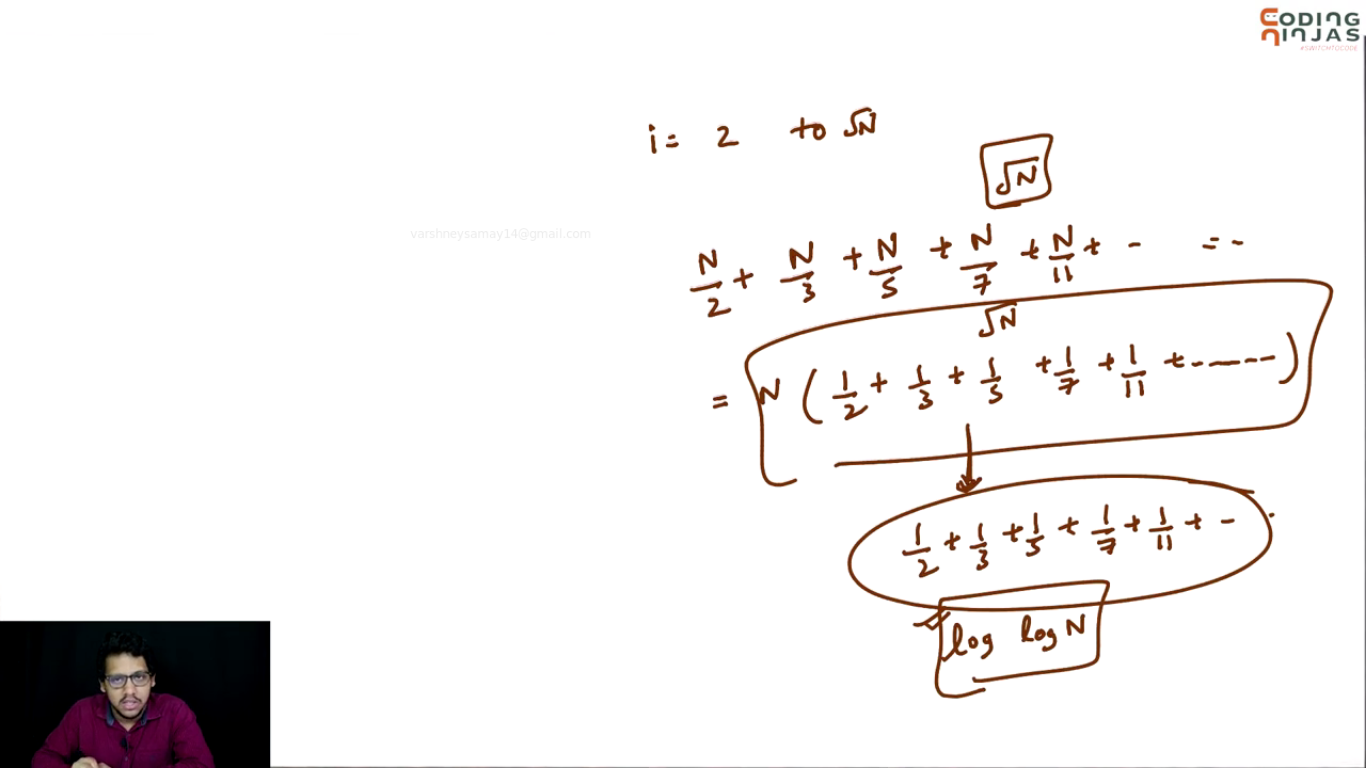 CODING
NINJAS
#SWITCHTOCODE
i = 2 to √N
√N
varshneysamay14@gmail.com
N/2 + N/3 + N/5 + N/7 + N/11 + - = -
√N
= N ( 1/2 + 1/3 + 1/5 + 1/7 + 1/11 + ------ )
1/2 + 1/3 + 1/5 + 1/7 + 1/11 + - .
log log N